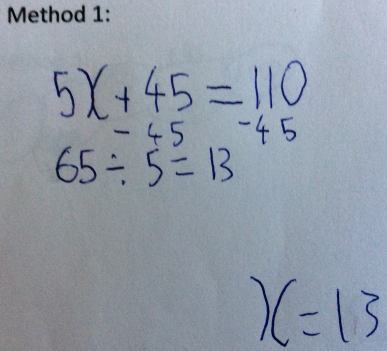 Method 1:
5x + 45 = 110
- 45 -45
65 ÷ 5 = 13
x = 13